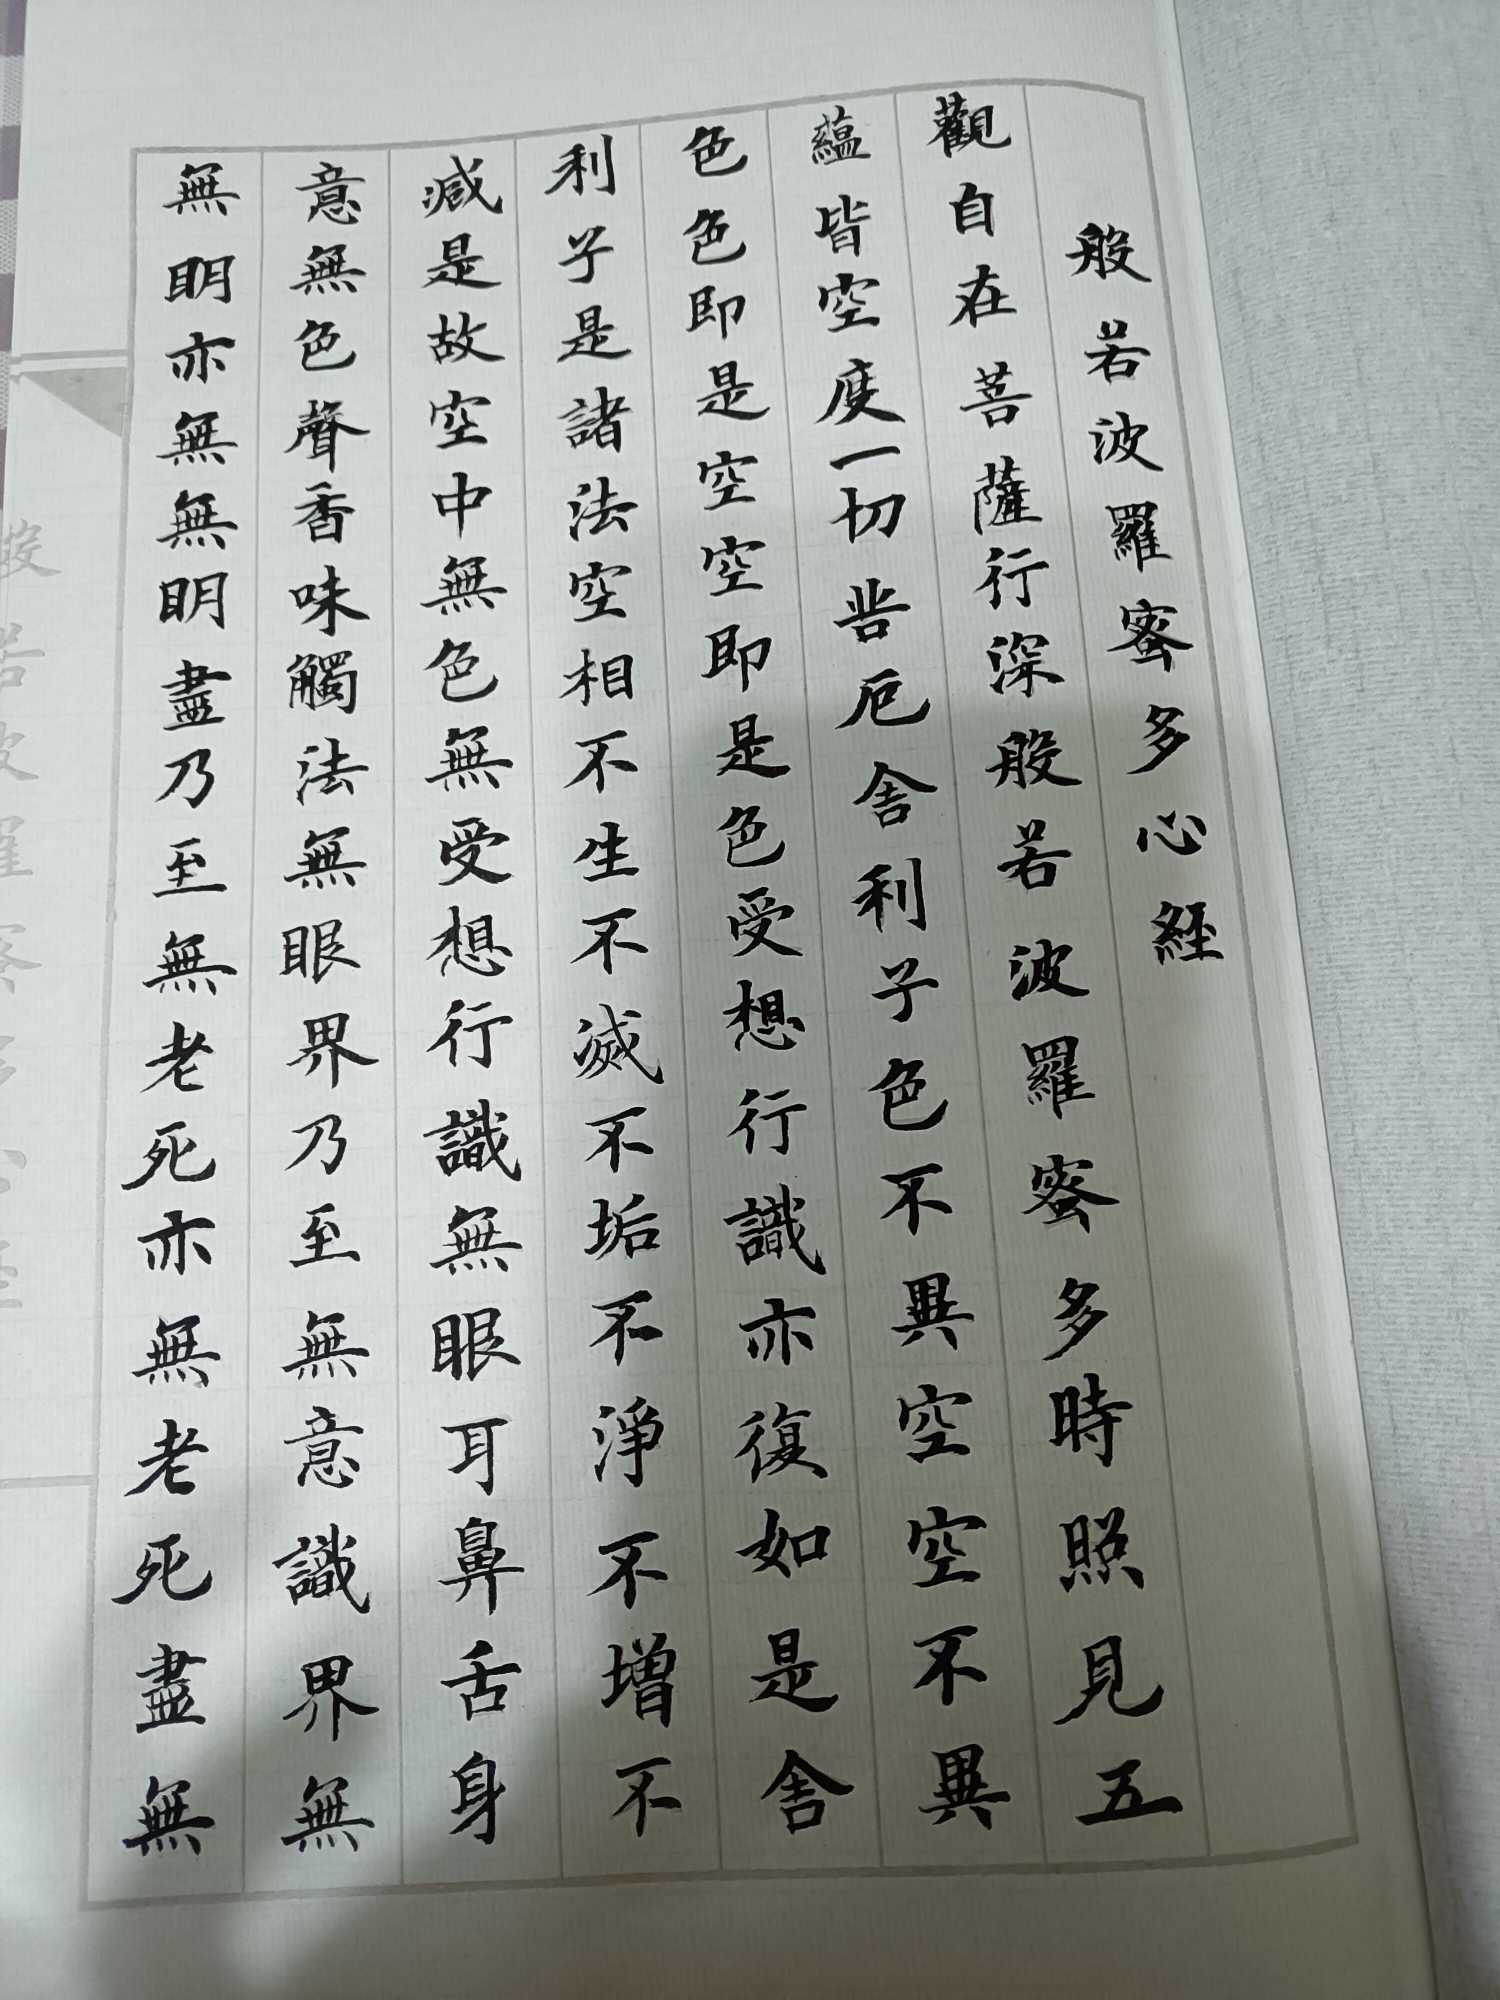 般若波羅蜜多心經
觀自在菩薩行深般若波羅蜜多時照見五
蘊皆空度一切苦厄舍利子色不異空空不異
色色即是空空即是色受想行識亦復如是舍
利子是諸法空相不生不滅不垢不淨不增不
減是故空中無色無受想行識無眼耳鼻舌身
意無色聲香味觸法無眼界乃至無意識界無
無明亦無無明盡乃至無老死亦無老死盡無
般若波羅蜜多心經